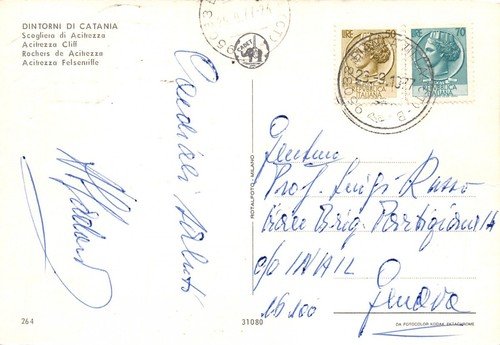 DINTORNI DI CATANIA
Scogliera di Acitrezza
Acitrezza Cliff
Rochers de Acitrezza
Acitrezza Felsenriffe
Cordiali saluti
264
31080
ROTALFOTO - MILANO
LIRE 50
REPUBBLICA ITALIANA
LIRE 70
REPUBBLICA ITALIANA
Prof. Luigi Russo
Viale Brig. Partigiane 1A
c/o INAIL
16100 Genova
DA FOTOCOLOR KODAK EKTACHROME